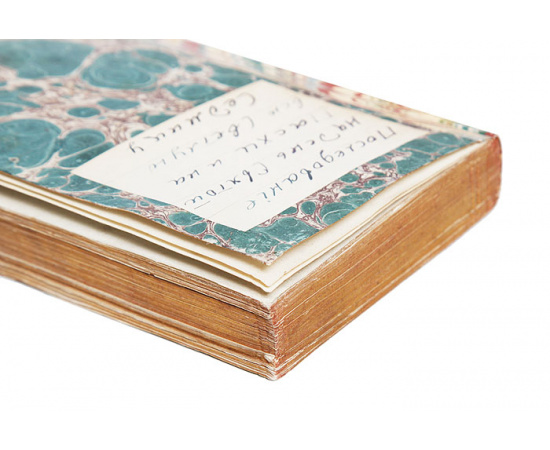 Последованіе
на день Святой
Пасхи и на
всю Светлую
Седмицу